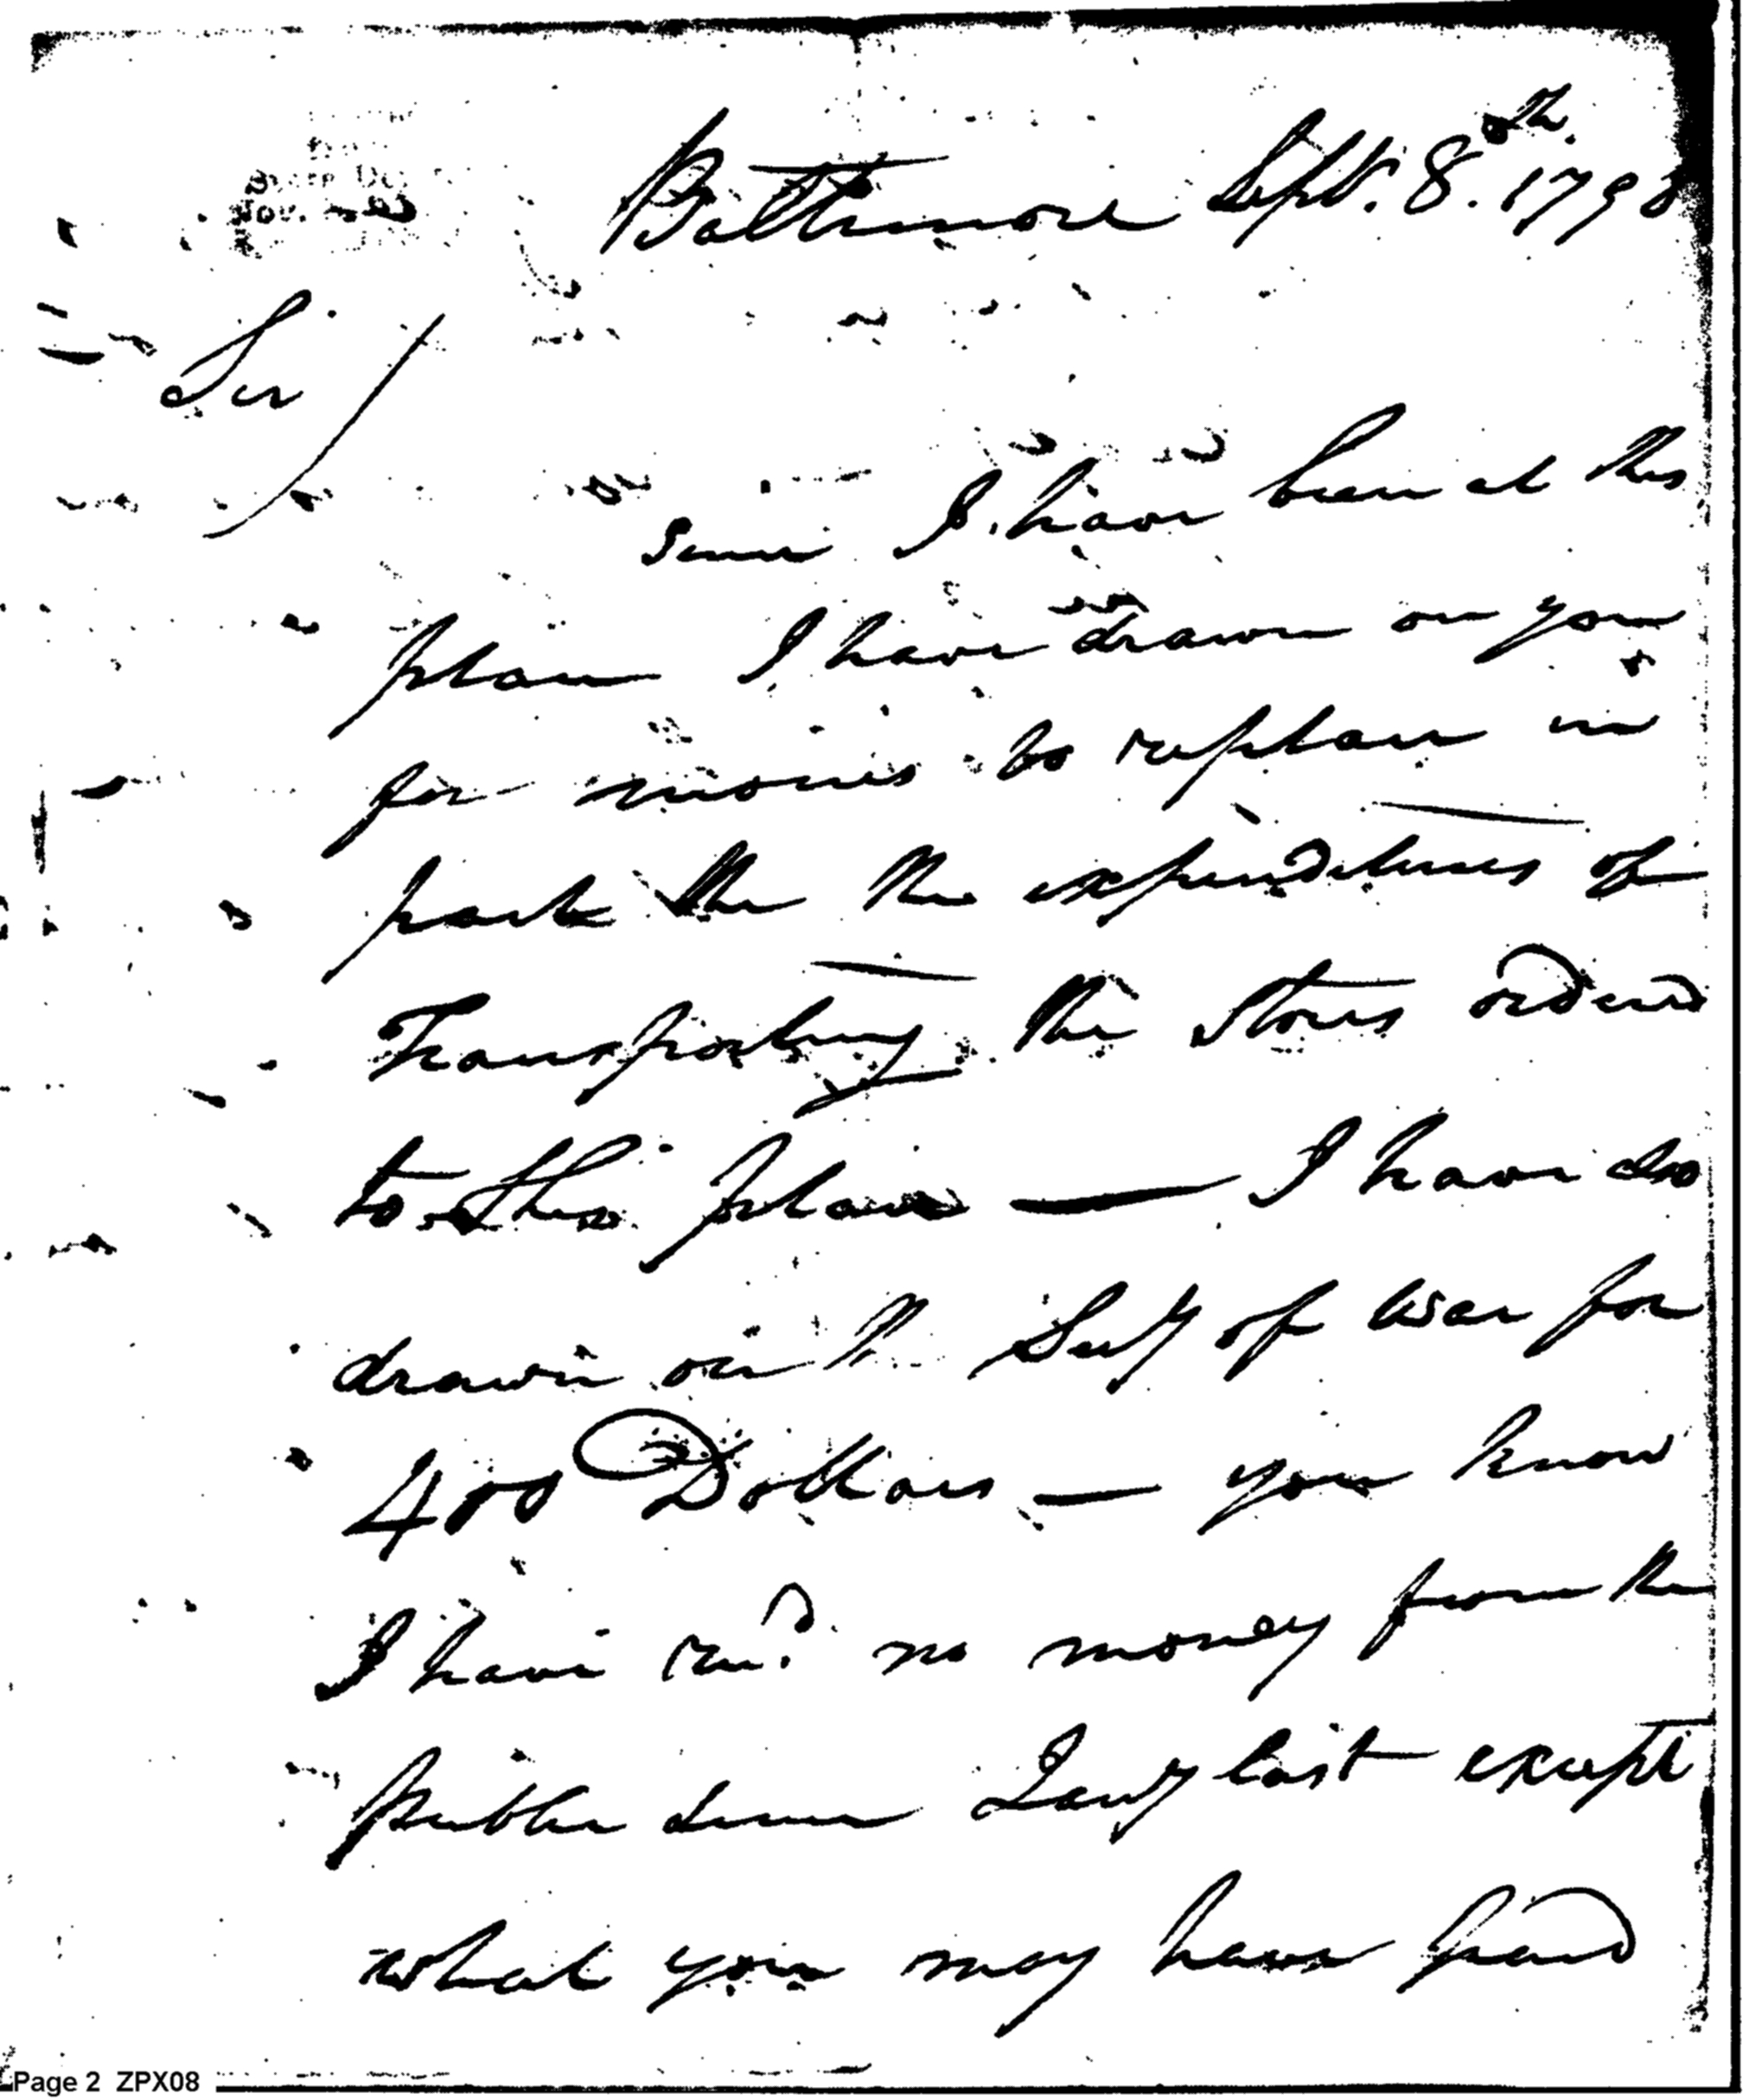 Baltimore Septr. 8th. 1798
Sir /
Since I have been at this
place I have drawn on you
for monies to replace in
part the the expenditures of
Transporting the stores ordered
to this place — I have also
drawn on the Secy of War for
400 Dollars — you know
I have recd. no money from the
Public since Jany last except
what you may have paid
Page 2 ZPX08